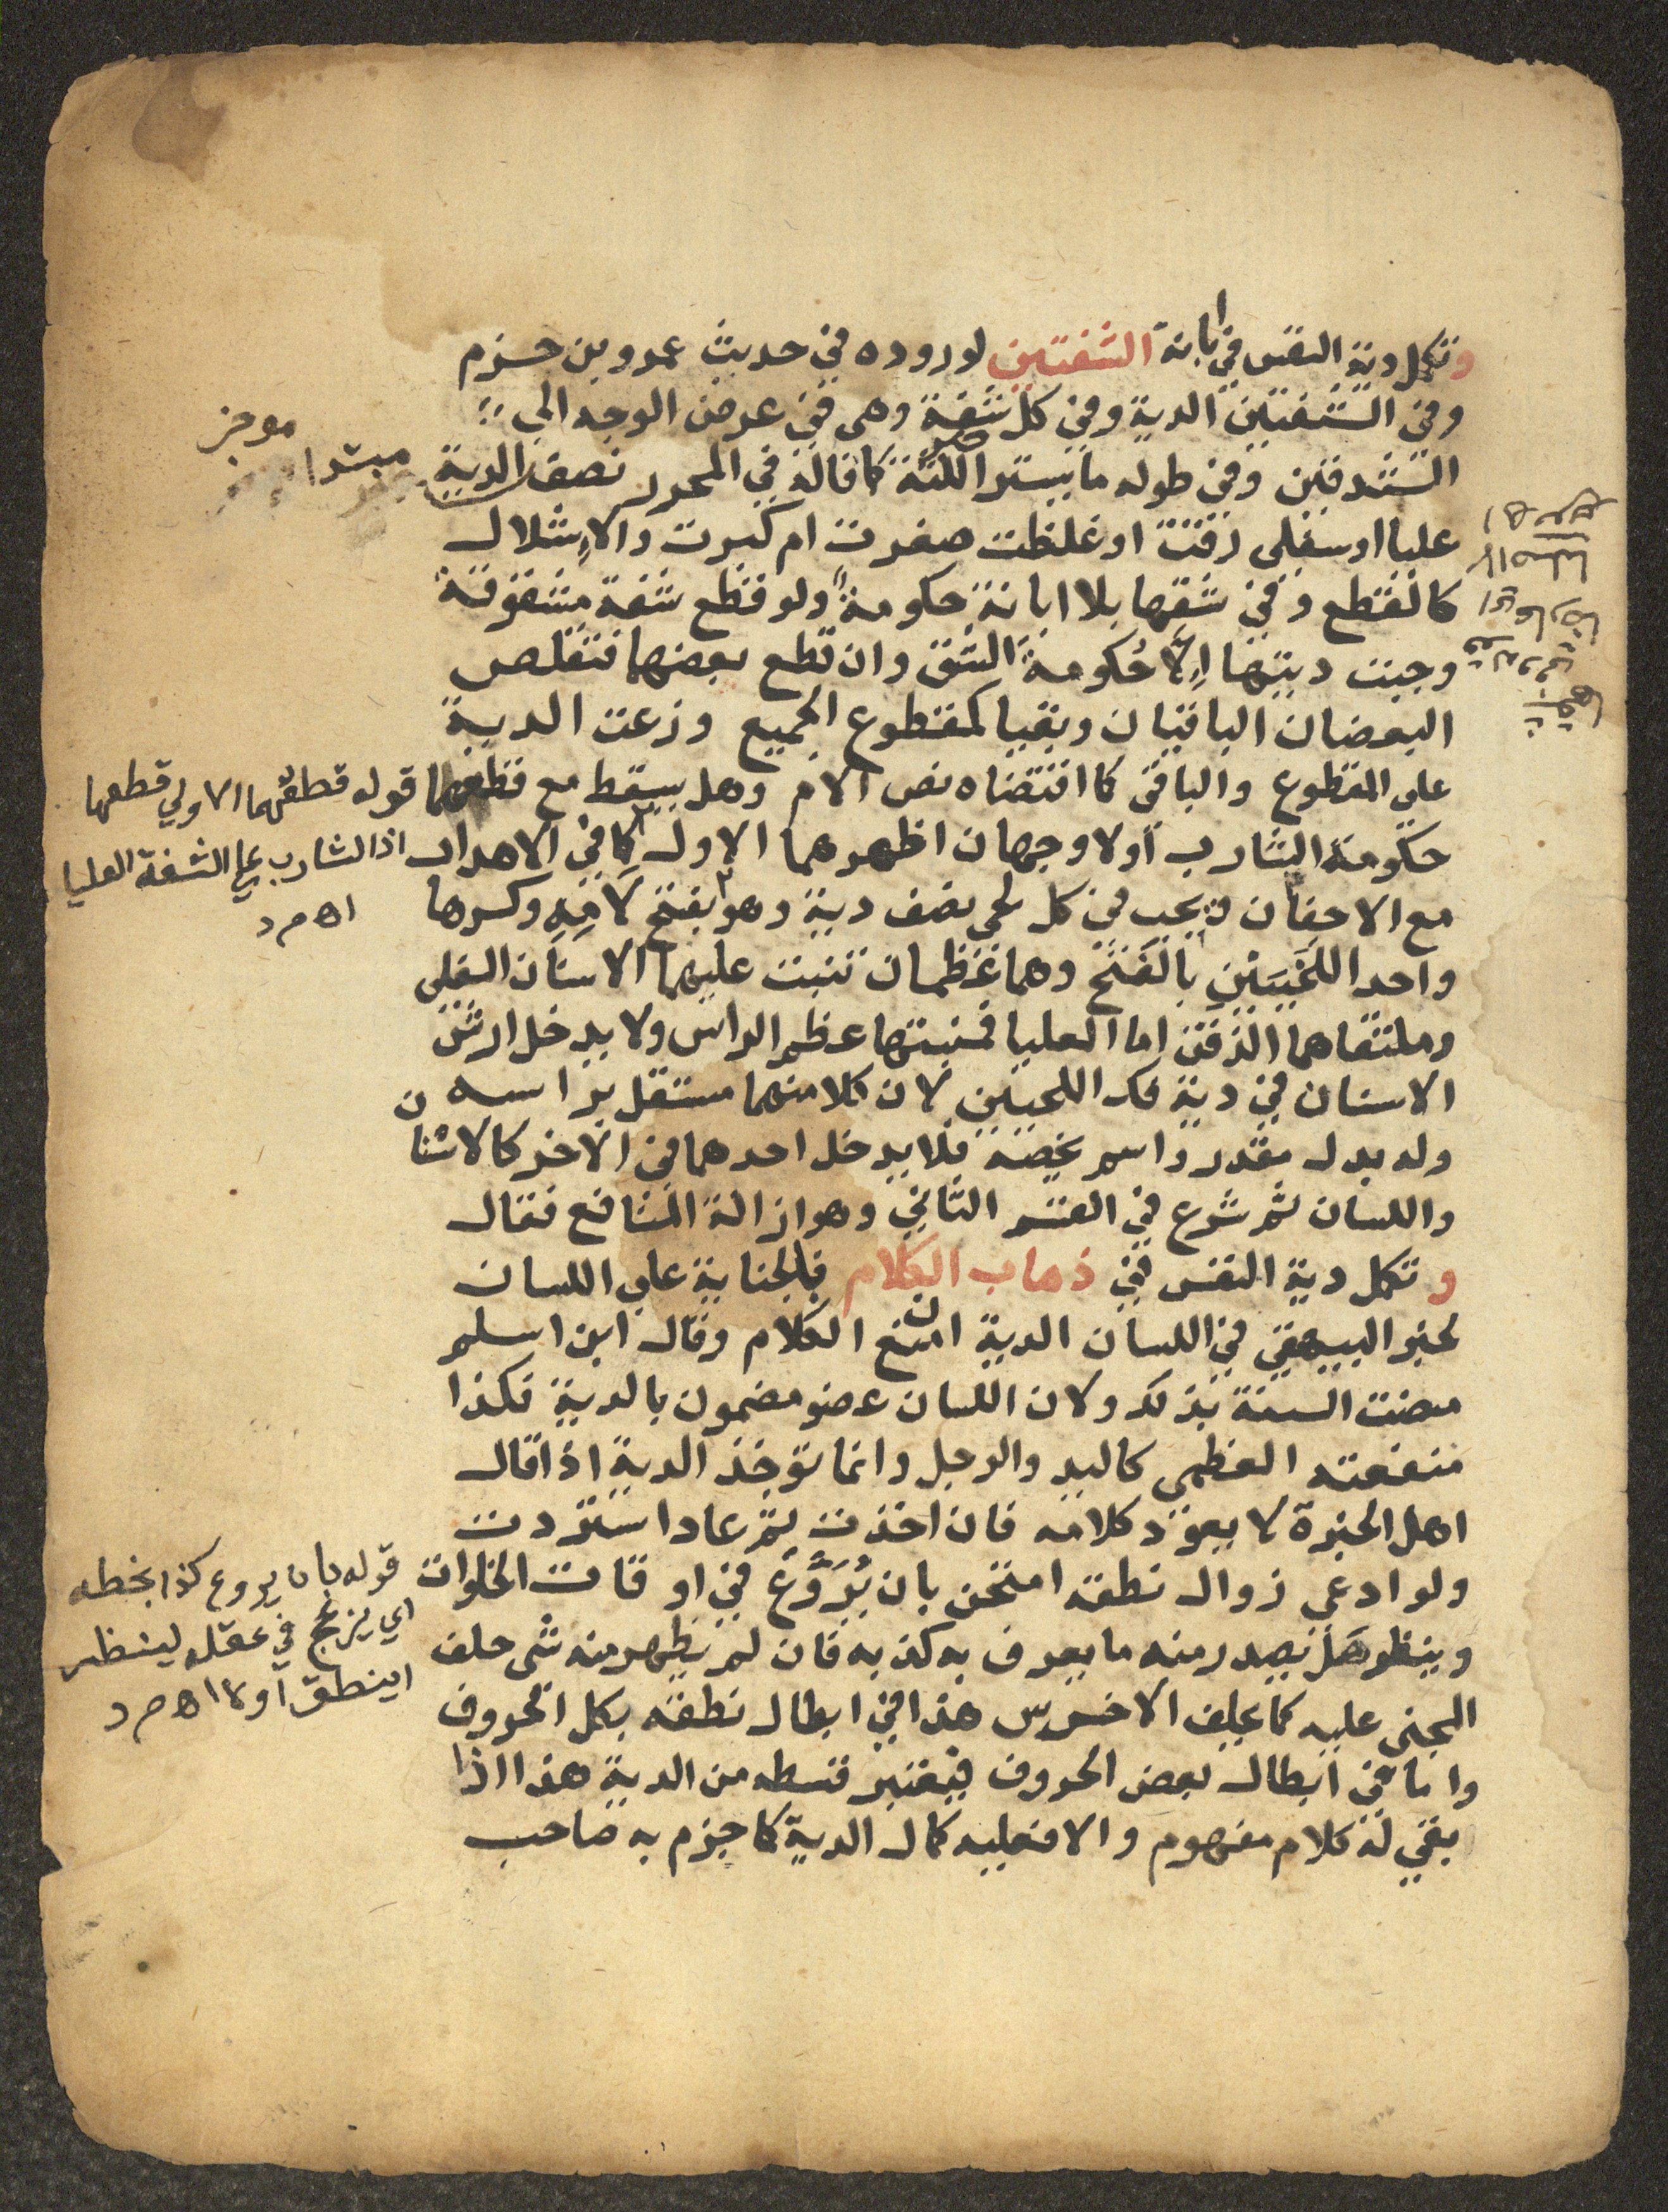 وتكمل دية النفس في ابانة الشفتين لوروده في حديث عمرو بن حزم
وفي الشفتين الدية وفي كل شفة وهي في عرض الوجه الي
الشدقين وفي طوله ما يستر اللثة كما قاله في المحرر نصف الدية
عليا او سفلى رقت او غلظت صغرت ام كبرت والاشلال
كالقطع وفي شقها بلا ابانة حكومة ولو قطع شفة مشقوقة
وجبت ديتها الا حكومة الشق وان قطع بعضهما فتقلص
البعضان الباقيان وبقيا كمقطوع الجميع وزعت الدية
علي المقطوع والباقي كما اقتضاه نص الام وهل يسقط مع قطعهما
حكومة الشارب او لا وجهان اظهرهما الاول كما في الاهداب
مع الاجفان ويجب في كل لحي نصف دية وهو بفتح لامه وكسرها
واحد اللحيين بالفتح وهما عظمان تنبت عليهما الاسنان السفلى
وملتقاهما الذقن اما العليا فمنبتها عظم الراس ولا يدخل ارش
الاسنان في دية فك اللحيين لان كلا منهما مستقل براسه
وله بدل مقدر واسم يخصه فلا يدخل احدهما في الاخر كالاسنان
واللسان ثم شرع في القسم الثاني وهو ازالة المنافع فقال
وتكمل دية النفس في ذهاب الكلام في الجناية علي اللسان
لخبر البيهقي في اللسان الدية ان منع الكلام وقال ابن اسلم
مضت السنة بذلك ولان اللسان عضو مضمون بالدية فكذا
منفعته العظمى كاليد والرجل وانما تؤخذ الدية اذا قال
اهل الخبرة لا يعود كلامه فان اخذت ثم عاد استردت
ولو ادعي زوال نطقه امتحن بان يُرَوَّع في اوقات الخلوات
وينظر هل يصدر منه ما يعرف به كذبه فان لم يظهر منه شى حلف
المجنى عليه كما يحلف الاخرس هذا في ابطال نطقه بكل الحروف
واما في ابطال بعض الحروف فيعتبر قسطه من الدية هذا اذا
بقي له كلام مفهوم والا فعليه كمال الدية كما جزم به صاحب
مبتدا موخر
قوله قطعهما الاولي قطعها
اذ الشارب علي الشفة العليا
اه م د
قوله بان يروع كذا بخطه
اي يزعج في عقله لينظر
اينطق او لا اه م د